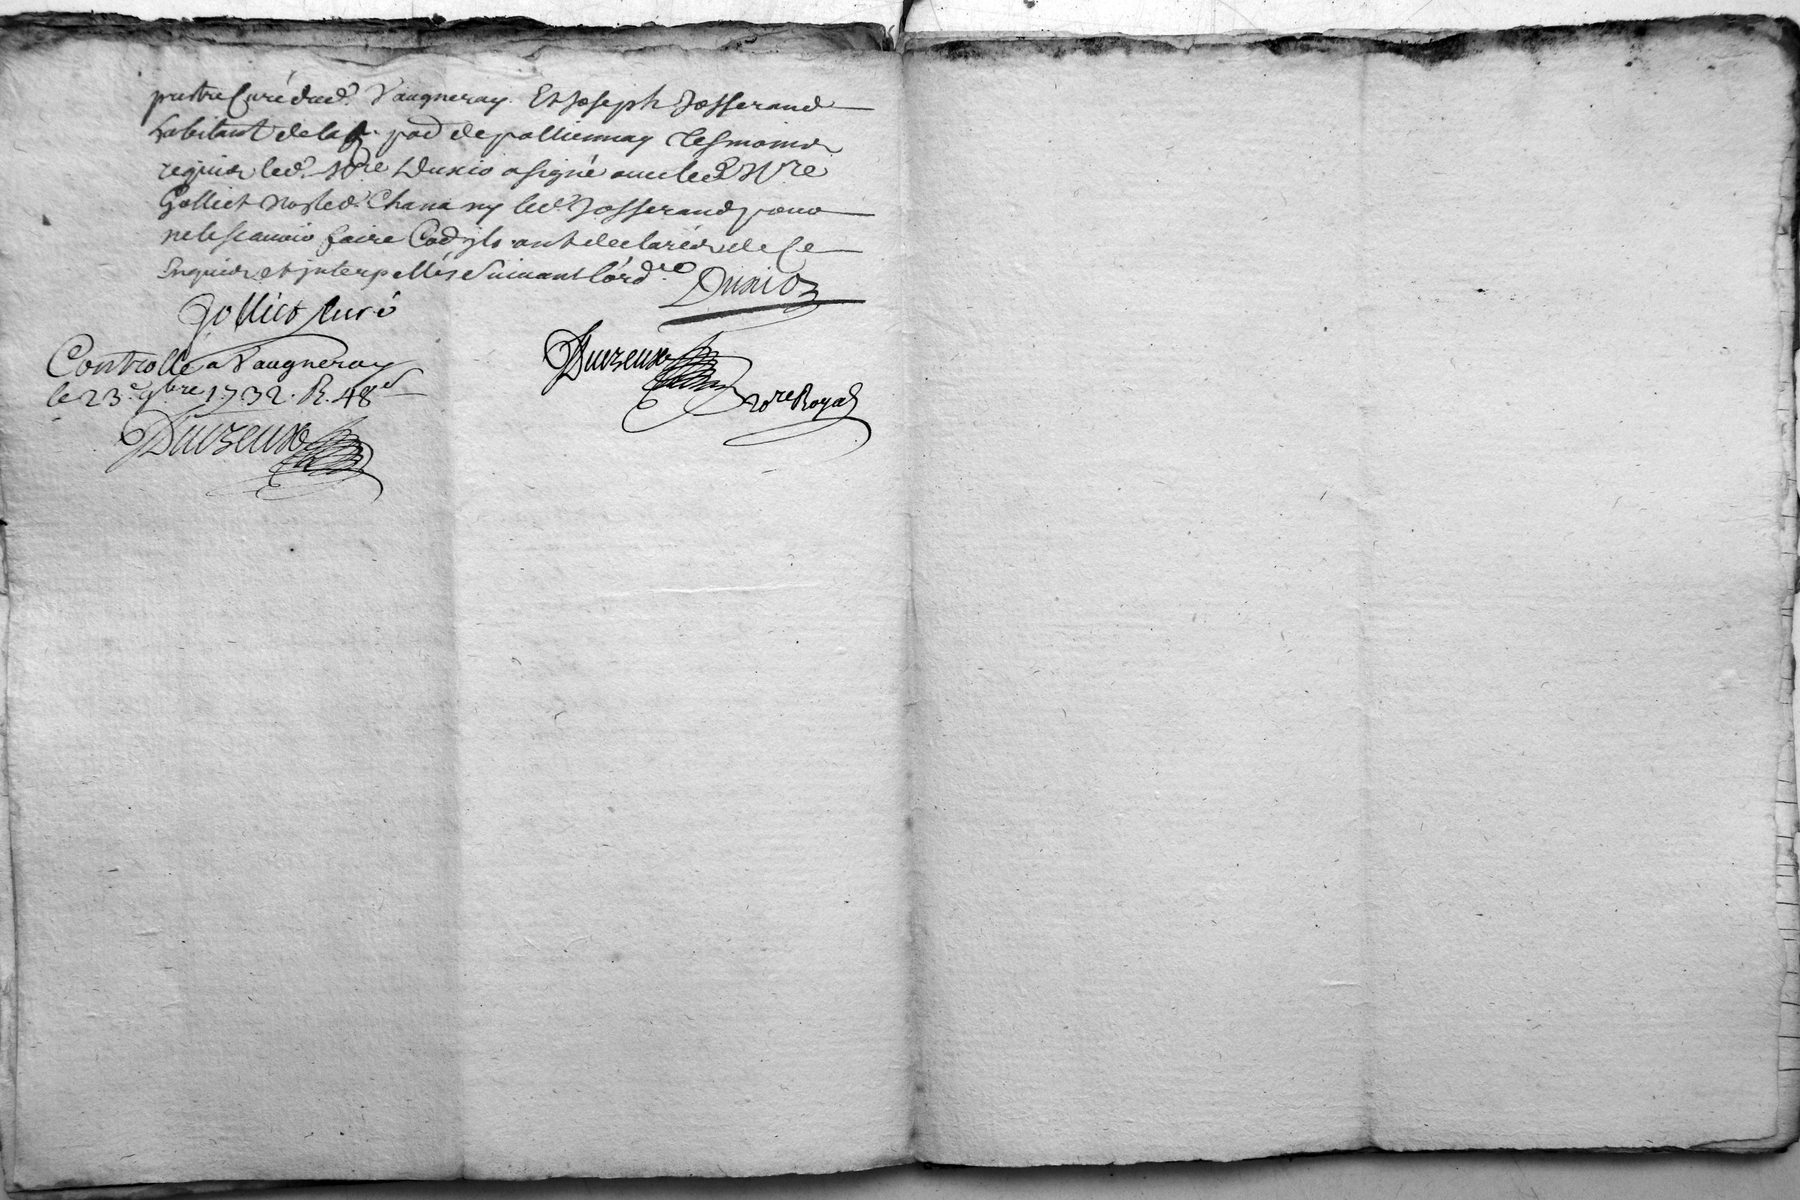 prestre Curé dud. Vaugneray. Et Joseph Josserand
habitant de la p. par de pollionnay tesmoins
requis led. Sr Dunio a signé avec led. Mre
Golliet Non led. Chana ny led. Josserand pour
ne le scavoir faire Co'ils ont declarés de Ce
Enquis et jnterpellés suivant l'ord.re
Golliet Curé
Controllé a Vaugneray
le 23e 9bre 1732. R. 48s
no.re Royal